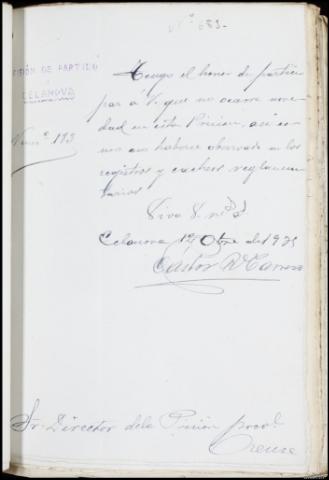 Nº 683-
PRISIÓN DE PARTIDO
CELANOVA
Num. 193
Tengo el honor de partici
par a V. que no ocurre nove
dad en esta Prision, asi co
mo haberse observado en los
registros y cacheos reglamen
tarios
Viva V. m.s a.s
Celanova 1º Obre de 1925
Castor
Sr. Director de la Prisión provl.
Orense